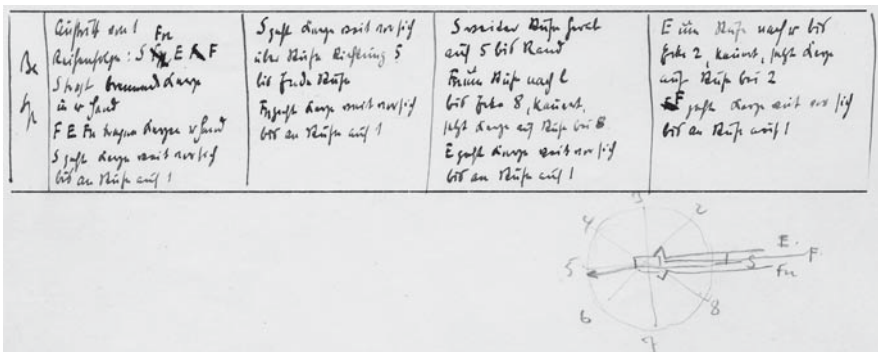 Be
Sp
Auftritt von 1
Fn
Reihenfolge: S E F
S trägt brennende Kerze
in r Hand
F E Fn tragen Kerzen r Hand
S geht Kerze weit vor sich
bis an Stufe auf 1
S geht Kerze weit vor sich
über Stufe Richtung 5
bis Ende Stufe
Fn geht Kerze weit vor sich
bis an Stufe auf 1
S weiter Stufe herab
auf 5 bis Rand
Fn um Stufe nach l
bis Ecke 8, kauert,
setzt Kerze auf Stufe bei 8
E geht Kerze weit vor sich
bis an Stufe auf 1
E um Stufe nach r bis
Ecke 2, kauert, setzt Kerze
auf Stufe bei 2
F geht Kerze weit vor sich
bis an Stufe auf 1
3
4
2
E.
5
S
F
Fn
6
8
7